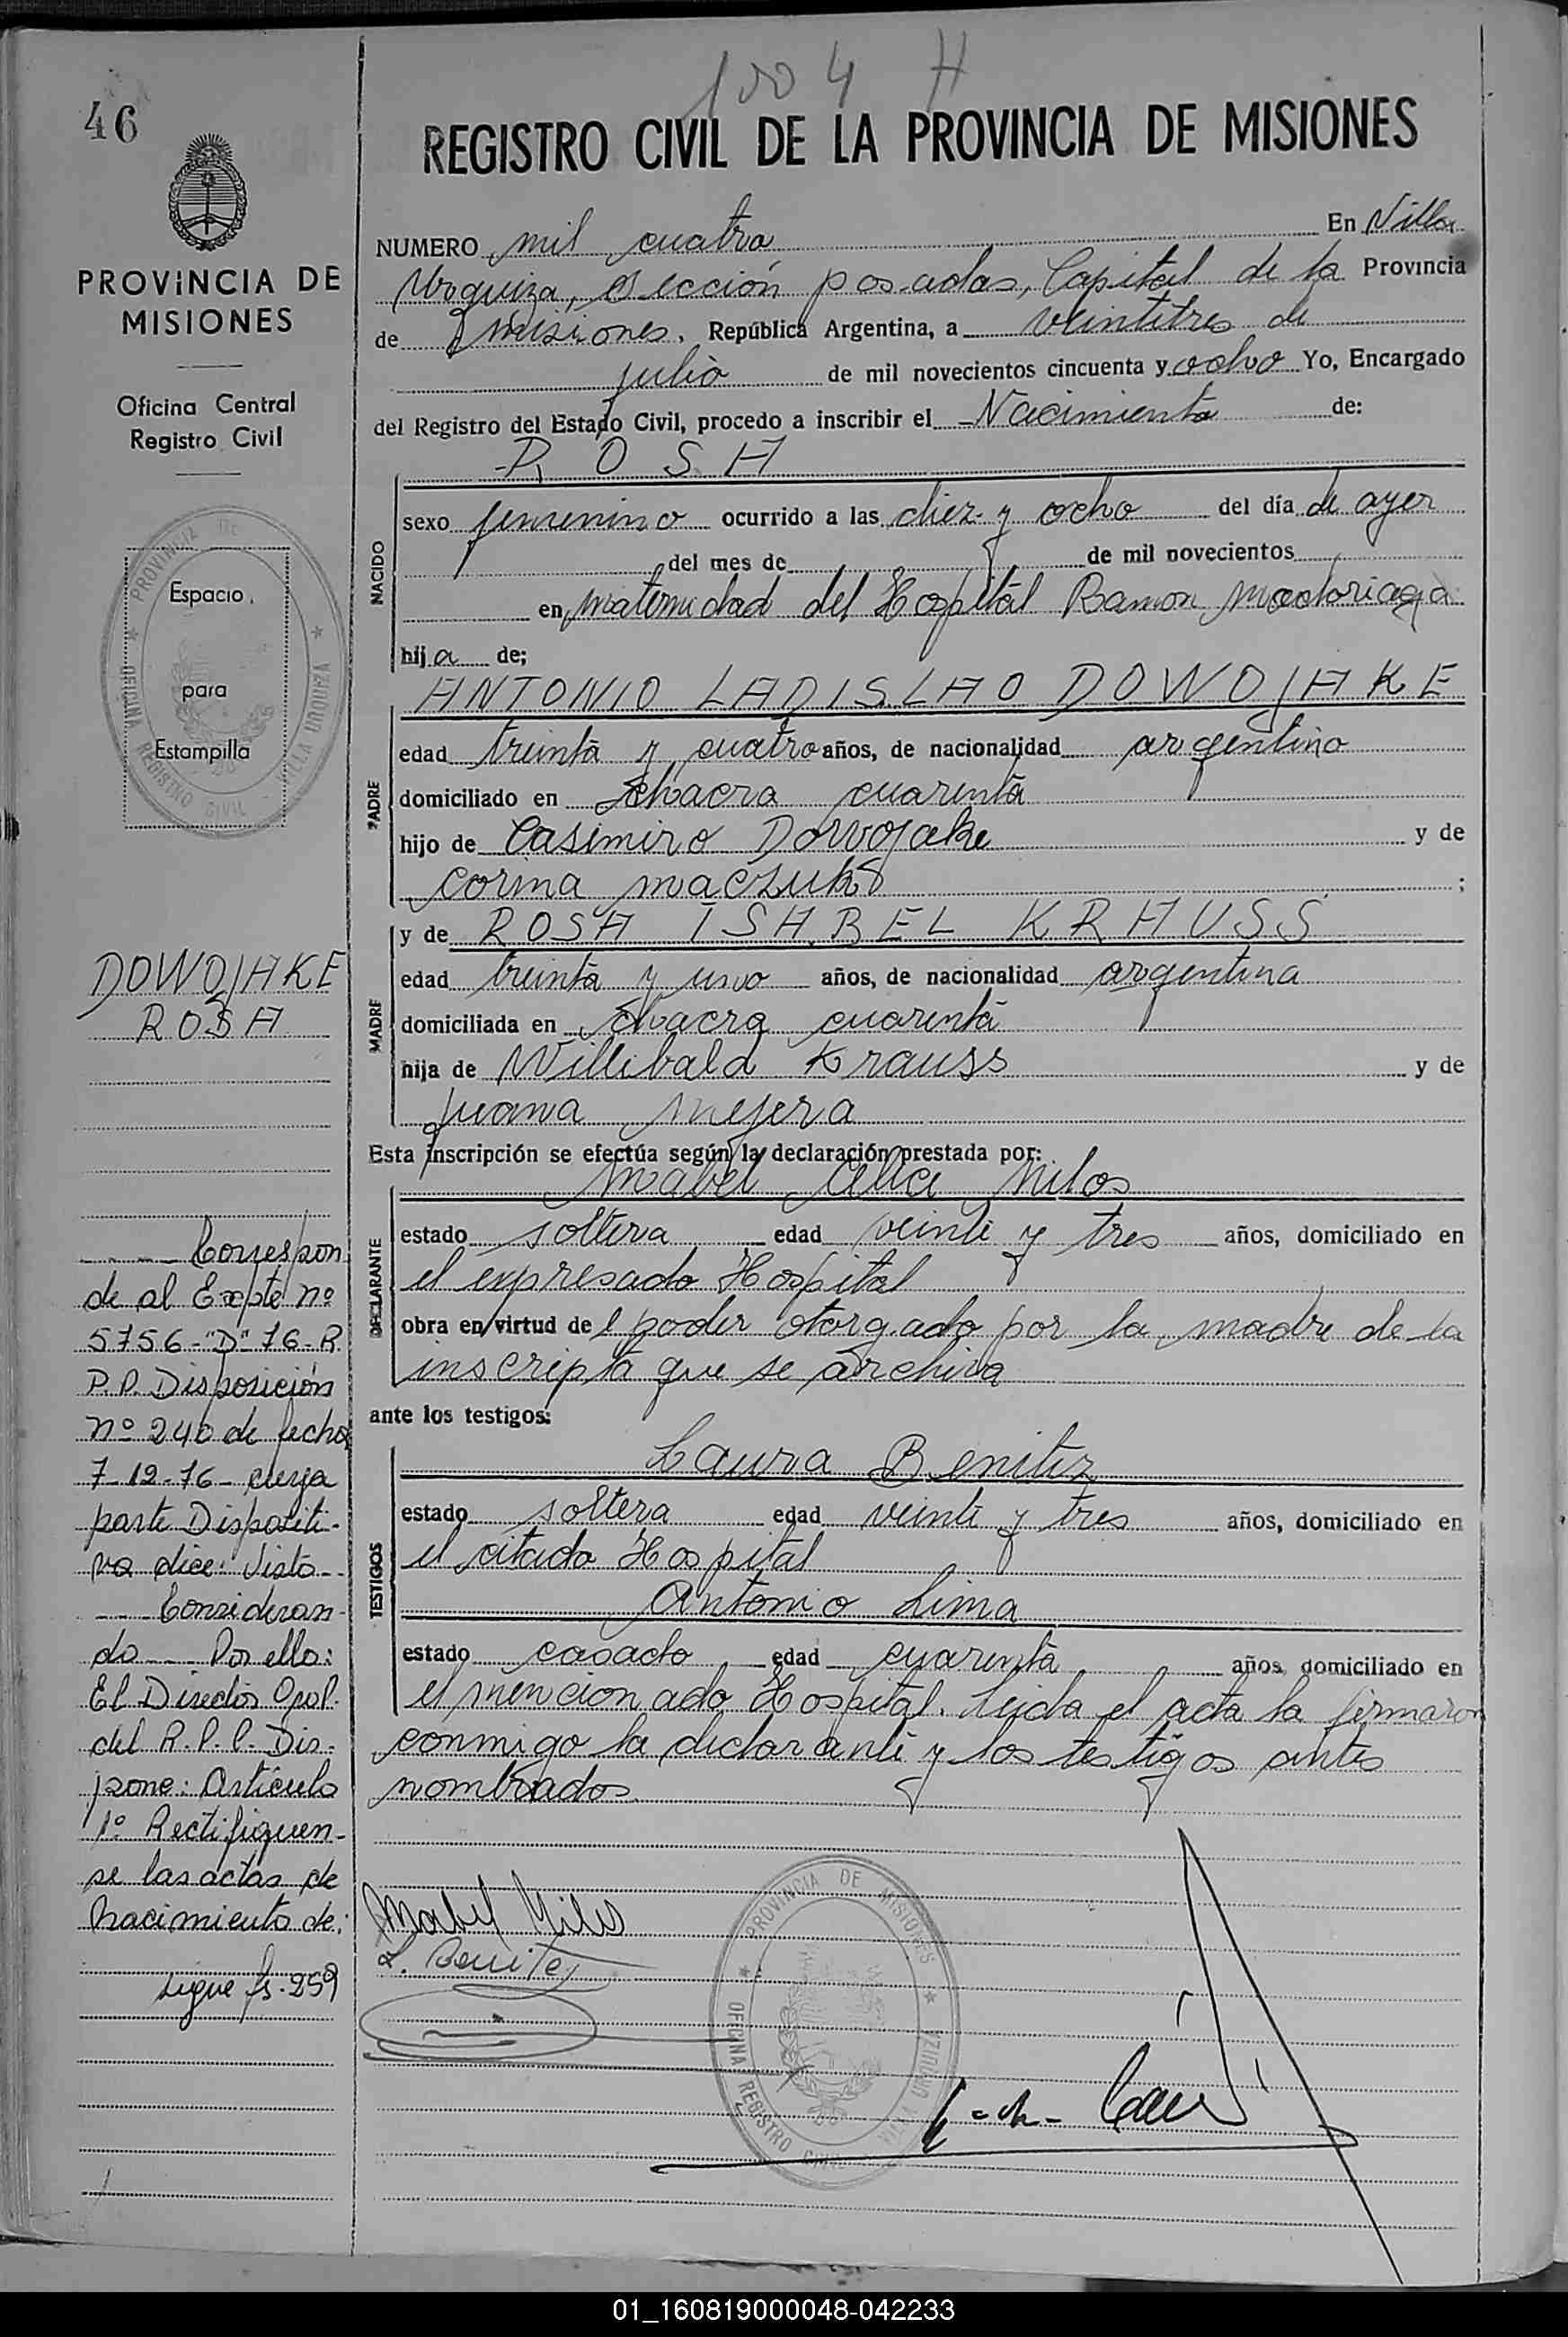 1004 H
46
REGISTRO CIVIL DE LA PROVINCIA DE MISIONES
PROVINCIA DE
MISIONES
Oficina Central
Registro Civil
Espacio
para
Estampilla
PROVINCIA DE
OFICINA REGISTRO CIVIL - VILLA URQUIZA
DOWOJAKE
ROSA
Correspon
de al Expte nº
5756-"D"-76-R.
P.P. Disposición
nº 240 de fecha
7-12-76- cuya
parte Dispositi-
va dice: Visto--
---Consideran-
do --- Por ello:
El Director Gral.
del R.P.P. Dis-
pone: Artículo
1º Rectifiquen-
se las actas de
nacimiento de:
sigue fs. 259
NUMERO mil cuatro En Villa
Urquiza, Sección posadas, Capital de la Provincia
de misiones, República Argentina, a veintitres de
julio de mil novecientos cincuenta y ocho Yo, Encargado
del Registro del Estado Civil, procedo a inscribir el Nacimiento de:
ROSA
NACIDO
sexo femenino ocurrido a las diez y ocho del día de ayer
del mes de de mil novecientos
en maternidad del Hospital Ramon madariaga
hija de;
ANTONIO LADISLAO DOWOJAKE
PADRE
edad treinta y cuatro años, de nacionalidad argentino
domiciliado en Chacra cuarenta
hijo de Casimiro Dowojake y de
corina maczuk ;
y de ROSA ISABEL KRAUSS
MADRE
edad treinta y uno años, de nacionalidad argentina
domiciliada en Chacra cuarenta
hija de Willibald Krauss y de
juana mejera
Esta inscripción se efectúa según la declaración prestada por:
mabel Celia Milos
DECLARANTE
estado soltera edad veinte y tres años, domiciliado en
el expresado Hospital
obra en virtud de l poder otorgado por la madre de la
inscripta que se archiva
ante los testigos:
Laura Benitez
TESTIGOS
estado soltera edad veinte y tres años, domiciliado en
el citado Hospital
Antonio Lima
estado casado edad cuarenta años, domiciliado en
el mencionado Hospital. Leida el acta la firmaron
conmigo la declarante y los testigos antes
nombrados
Mabel Milos
L. Benitez
PROVINCIA DE MISIONES
OFICINA REGISTRO CIVIL VILLA URQUIZA
01_160819000048-042233